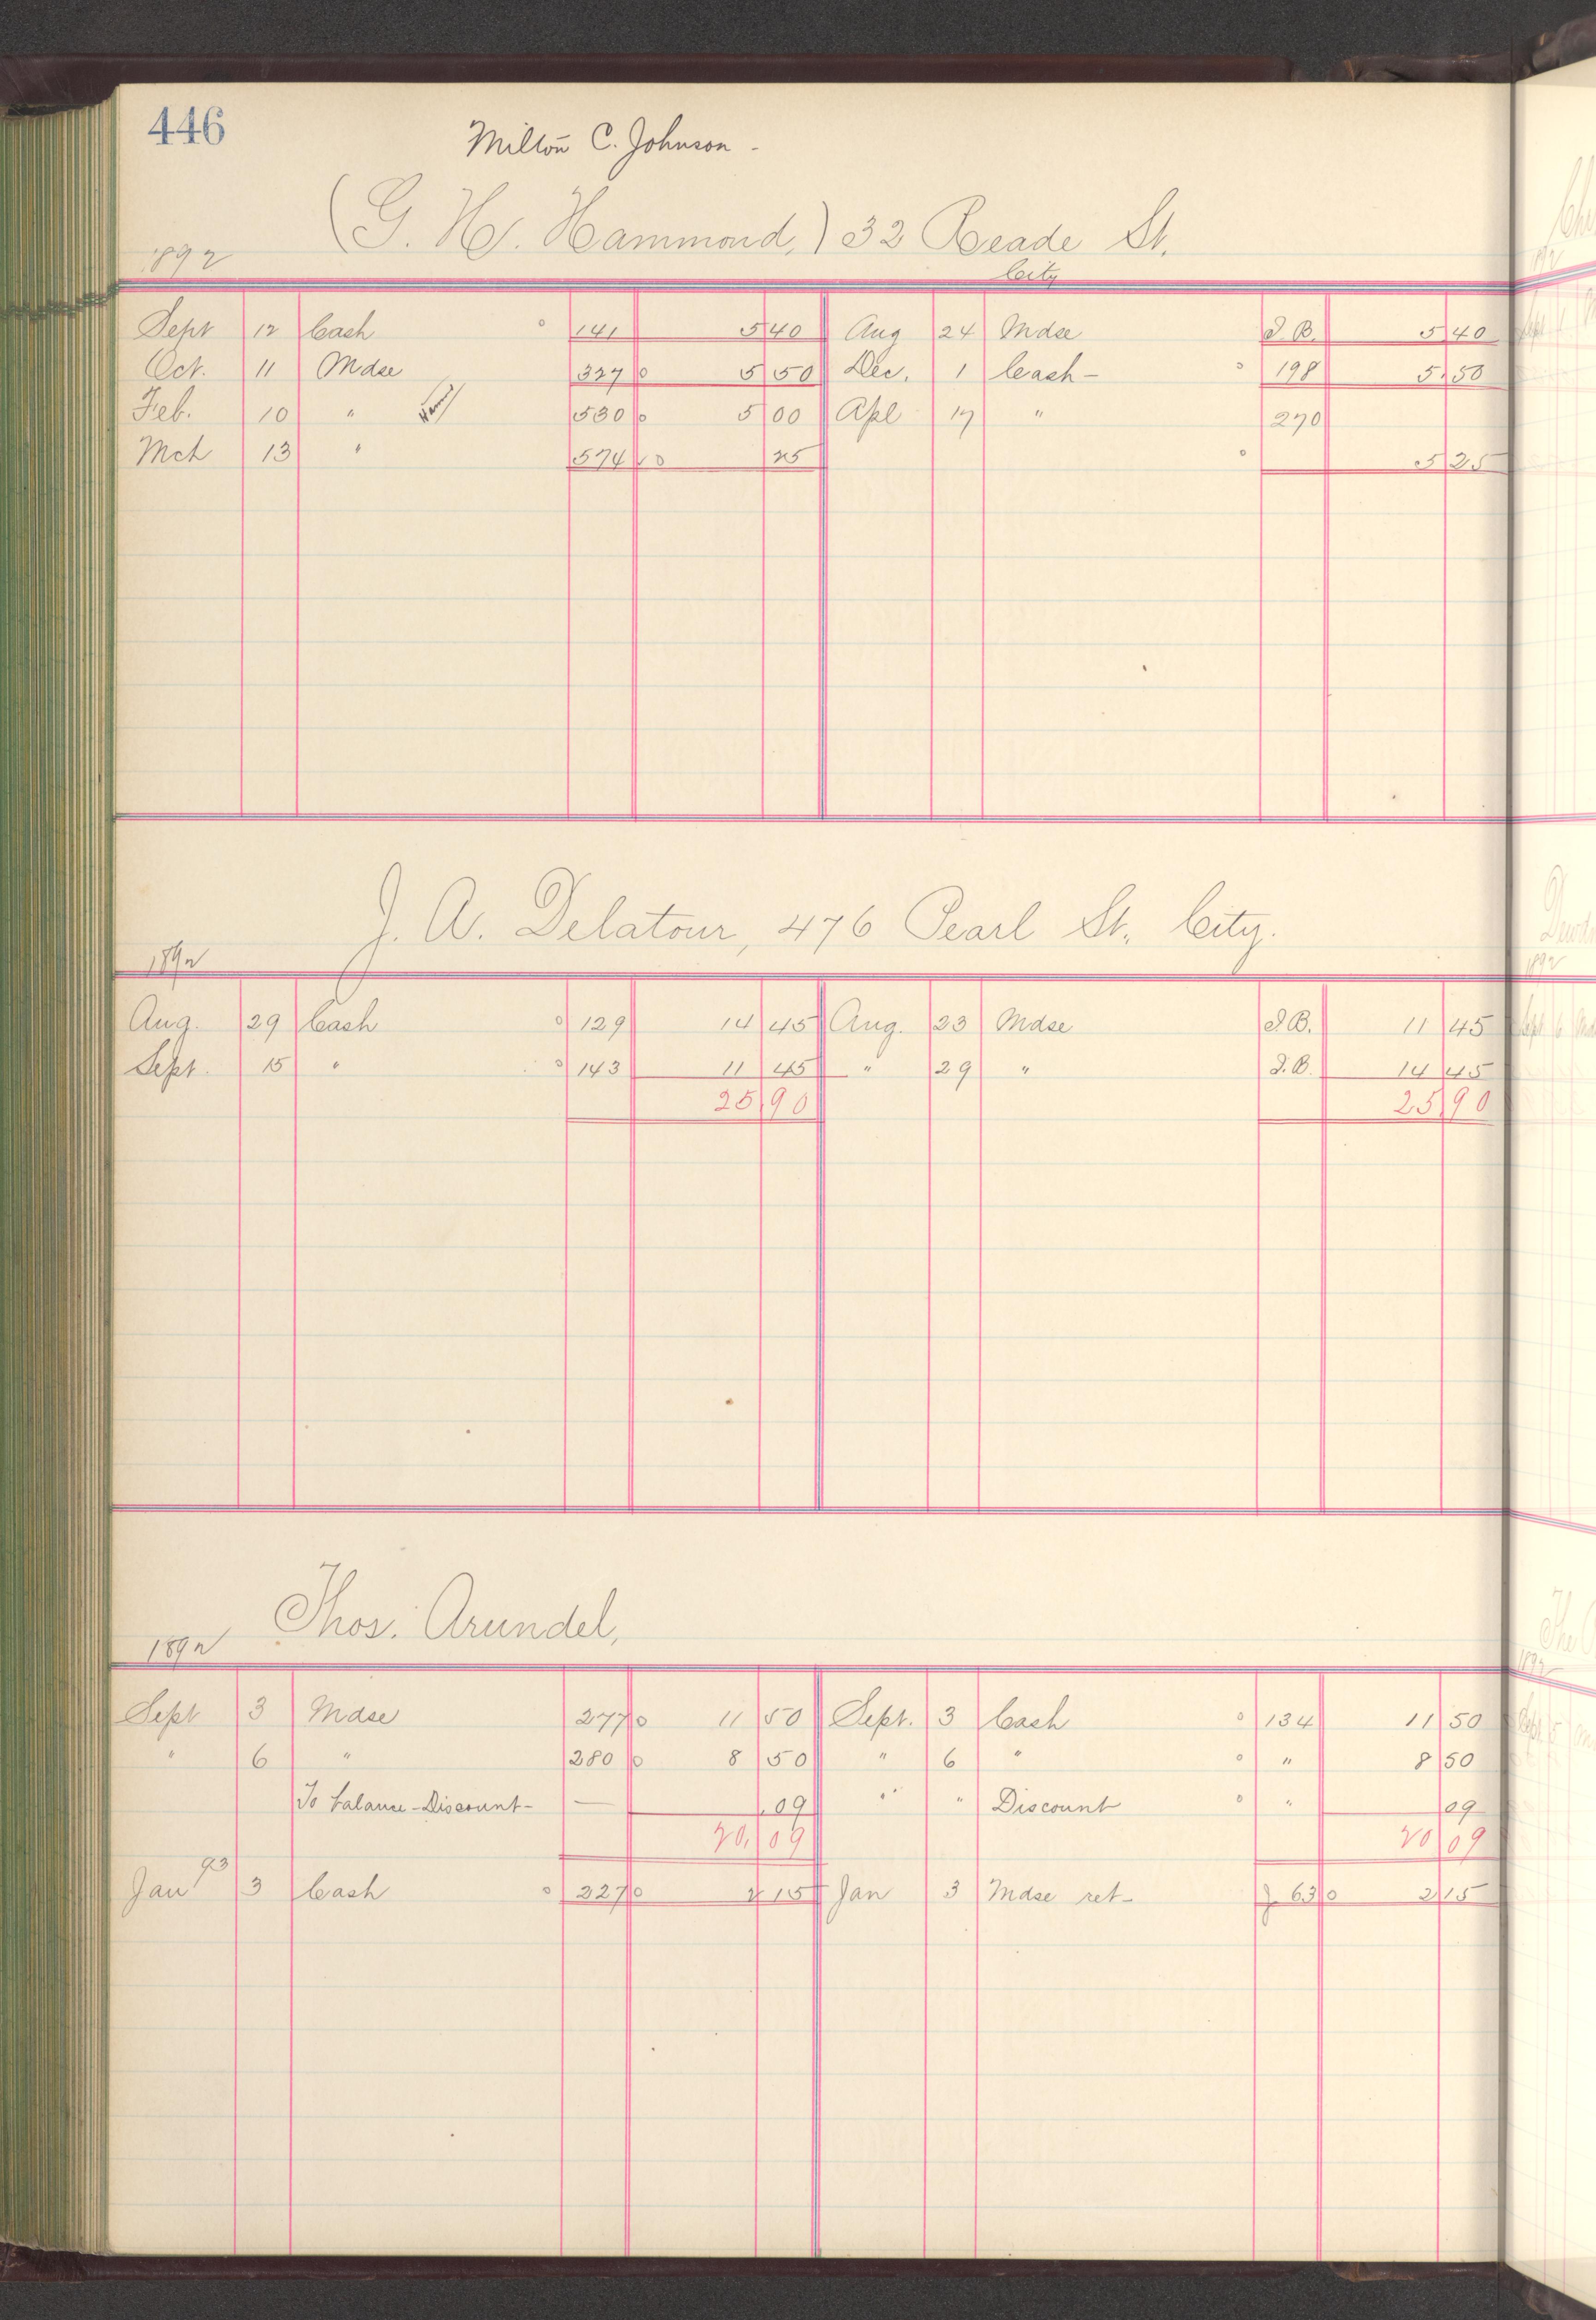 446
Milton C. Johnson -
(G. H. Hammond,) 32 Reade St.
City
1892
Sept 12 Cash 141 5 40 Aug 24 Mdse I. B. 5 40
Oct. 11 Mdse 327 5 50 Dec. 1 Cash - 198 5 50
Feb. 10 " 530 5 00 Apl 17 " 270
Mch 13 " 574 25 5 25
J. A. Delatour, 476 Pearl St., City.
1892
Aug. 29 Cash 129 14 45 Aug. 23 Mdse I. B. 11 45
Sept. 15 " 143 11 45 " 29 " I. B. 14 45
25 90 25 90
Thos. Arundel,
1892
Sept 3 Mdse 277 11 50 Sept. 3 Cash 134 11 50
" 6 " 280 8 50 " 6 " " 8 50
To balance - Discount - — .09 " " Discount " 09
20.09 20 09
Jan 93 3 Cash 227 2 15 Jan 3 Mdse ret - J 63 2 15